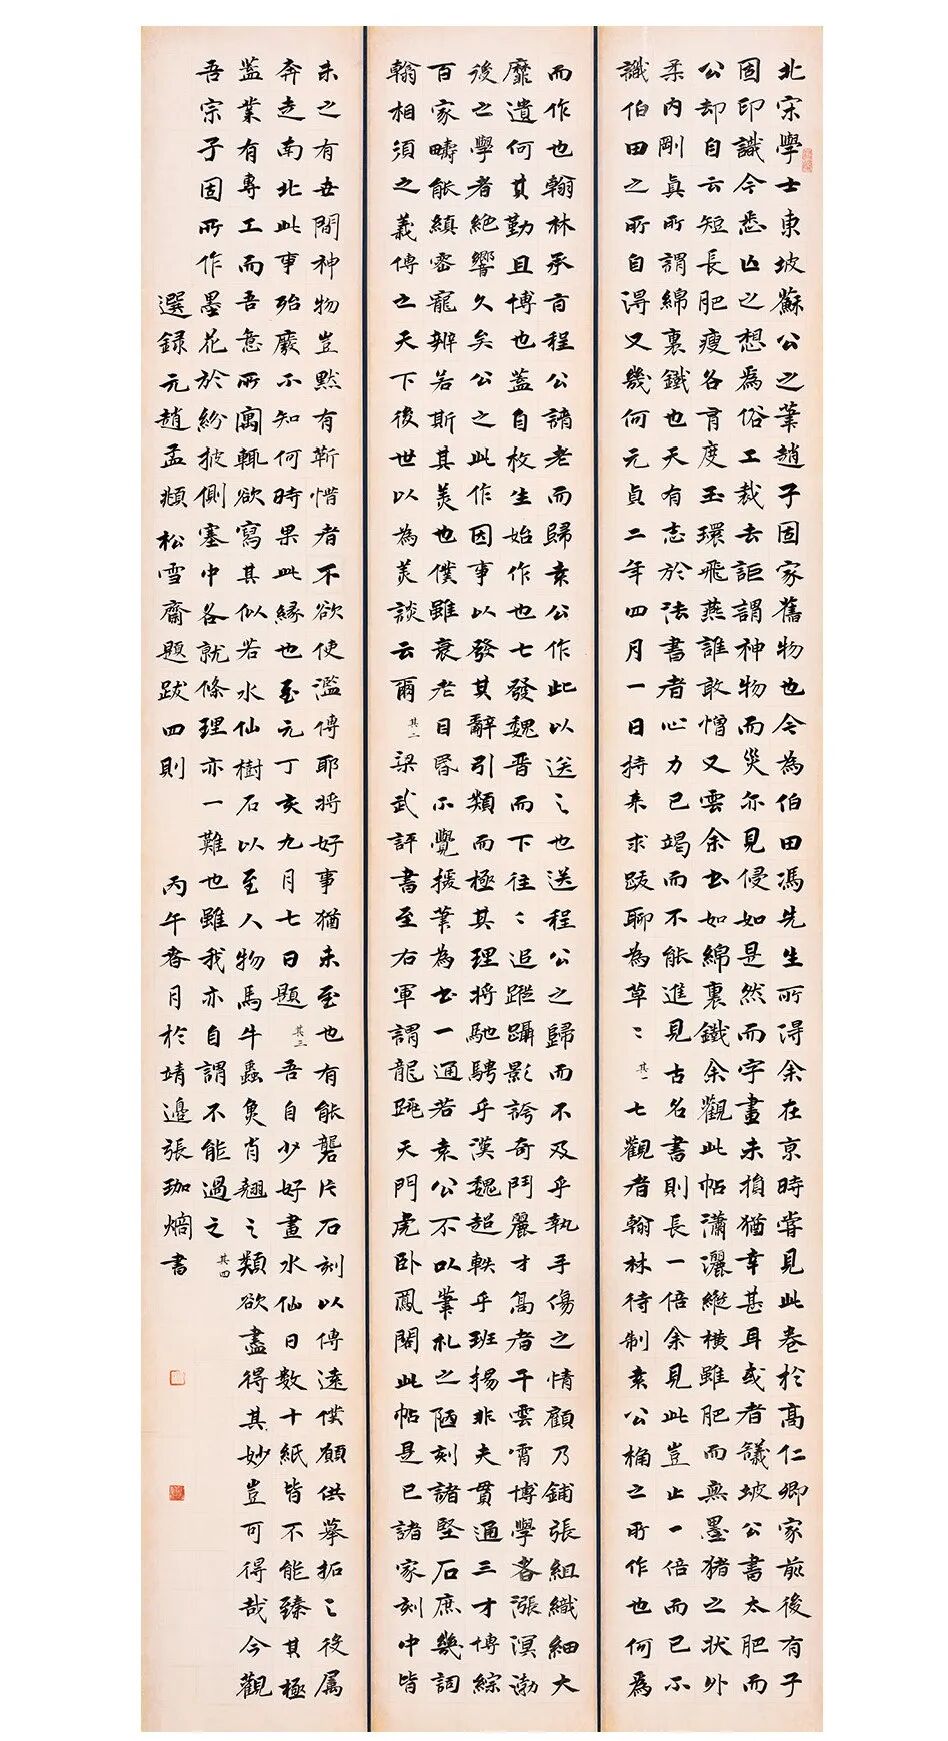 北宋學士東坡蘇公之筆趙子固家舊物也今為伯田馮先生所得余在京時嘗見此卷於高仁卿家前後有子
固印識今悉亡之想爲俗工裁去詎謂神物而災亦見侵如是然而字畫未損猶幸甚耳或者議坡公書太肥而
公却自云短長肥瘦各有度玉環飛燕誰敢憎又雲余書如綿裏鐵余觀此帖瀟灑縱橫雖肥而無墨猪之状外
柔内剛真所謂綿裏鐵也天有志於法書者心力已竭而不能進見古名書則長一倍余見此豈止一倍而已不
識伯田之所自淂又幾何元貞二年四月一日持来求跋聊為草〻其一七觀者翰林待制袁公桷之所作也何爲
而作也翰林承旨程公請老而歸袁公作此以送之也送程公之歸而不及乎執手傷之情顧乃鋪張組織細大
靡遺何其勤且博也蓋自枚生始作也七發魏晋而下往〻追蹤躡影誇奇鬥麗才高者干雲霄博學者漲溟渤
後之學者絶響久矣公之此作因事以發其辭引類而極其理将馳騁乎漢魏超軼乎班揚非夫貫通三才博綜
百家疇能縝密寵辨若斯其美也僕雖衰老目昏不覺援筆為书一通若袁公不以筆札之陋刻諸堅石庶幾詞
翰相須之義傳之天下後世以為美談云爾其二梁武評書至右軍謂龍跳天門虎卧鳳閣此帖是已諸家刻中皆
未之有世間神物豈默有靳惜者不欲使濫傳耶将好事猶未至也有能礱片石刻以傳遠僕願供摹拓之役属
奔走南北此事殆廢不知何時果此縁也至元丁亥九月七日題其三吾自少好畫水仙日數十紙皆不能臻其極
蓋業有專工而吾意所寓輒欲寫其似若水仙樹石以至人物馬牛蟲魚肖翹之類欲盡得其妙豈可得哉今觀
吾宗子固所作墨花於紛披側塞中各就條理亦一難也雖我亦自謂不能過之其四
選録元趙孟頫松雪齋題跋四則 丙午春月於靖邊張珈熵书